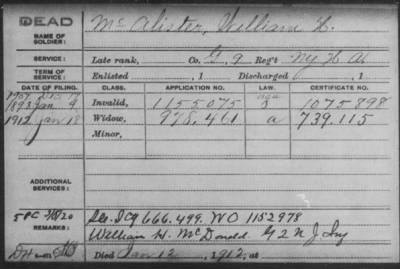 DEAD
NAME OF SOLDIER: McAlister, William H.
SERVICE: Late rank, Co. G, 9 Reg't NY H A.
TERM OF SERVICE: Enlisted , 1 Discharged , 1
DATE OF FILING. CLASS. APPLICATION NO. LAW CERTIFICATE NO.
1892 Jan 9 Invalid, 1155075 1075898
1912 Jan 18 Widow, 978.461 a 739.115
Minor,
ADDITIONAL SERVICES:
REMARKS: 666.499. WO 1152978
William H. McDonald G 2 N J Inf
Died Jan 12, 1912, at